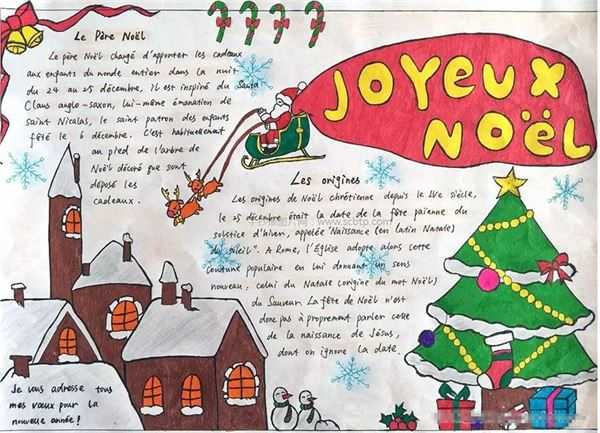 Le Père Noël
Le père Noël chargé d'apporter les cadeaux
aux enfants du monde entier dans la nuit
du 24 au 25 décembre, il est inspiré du Santa
Claus anglo-saxon, lui-même émanation de
saint Nicolas, le saint patron des enfants
fêté le 6 décembre. C'est habituellement
au pied de l'arbre de
Noël décoré que sont
déposé les
cadeaux.
JOYEUX
NOËL
Les origines
Les origines de Noël chrétienne depuis le IVe siècle,
le 25 décembre était la date de la fête païenne du
solstice d'hiver, appelée "Naissance (en latin Natale)
du soleil". A Rome, l'Église adopte alors cette
coutume populaire en lui donnant un sens
nouveau: celui du Natale (origine du mot Noël)
du Sauveur. La fête de Noël n'est
donc pas à proprement parler celle
de la naissance de Jésus,
dont on ignore la date.
Je vous adresse tous
mes vœux pour la
nouvelle année!
www.scbtp.com